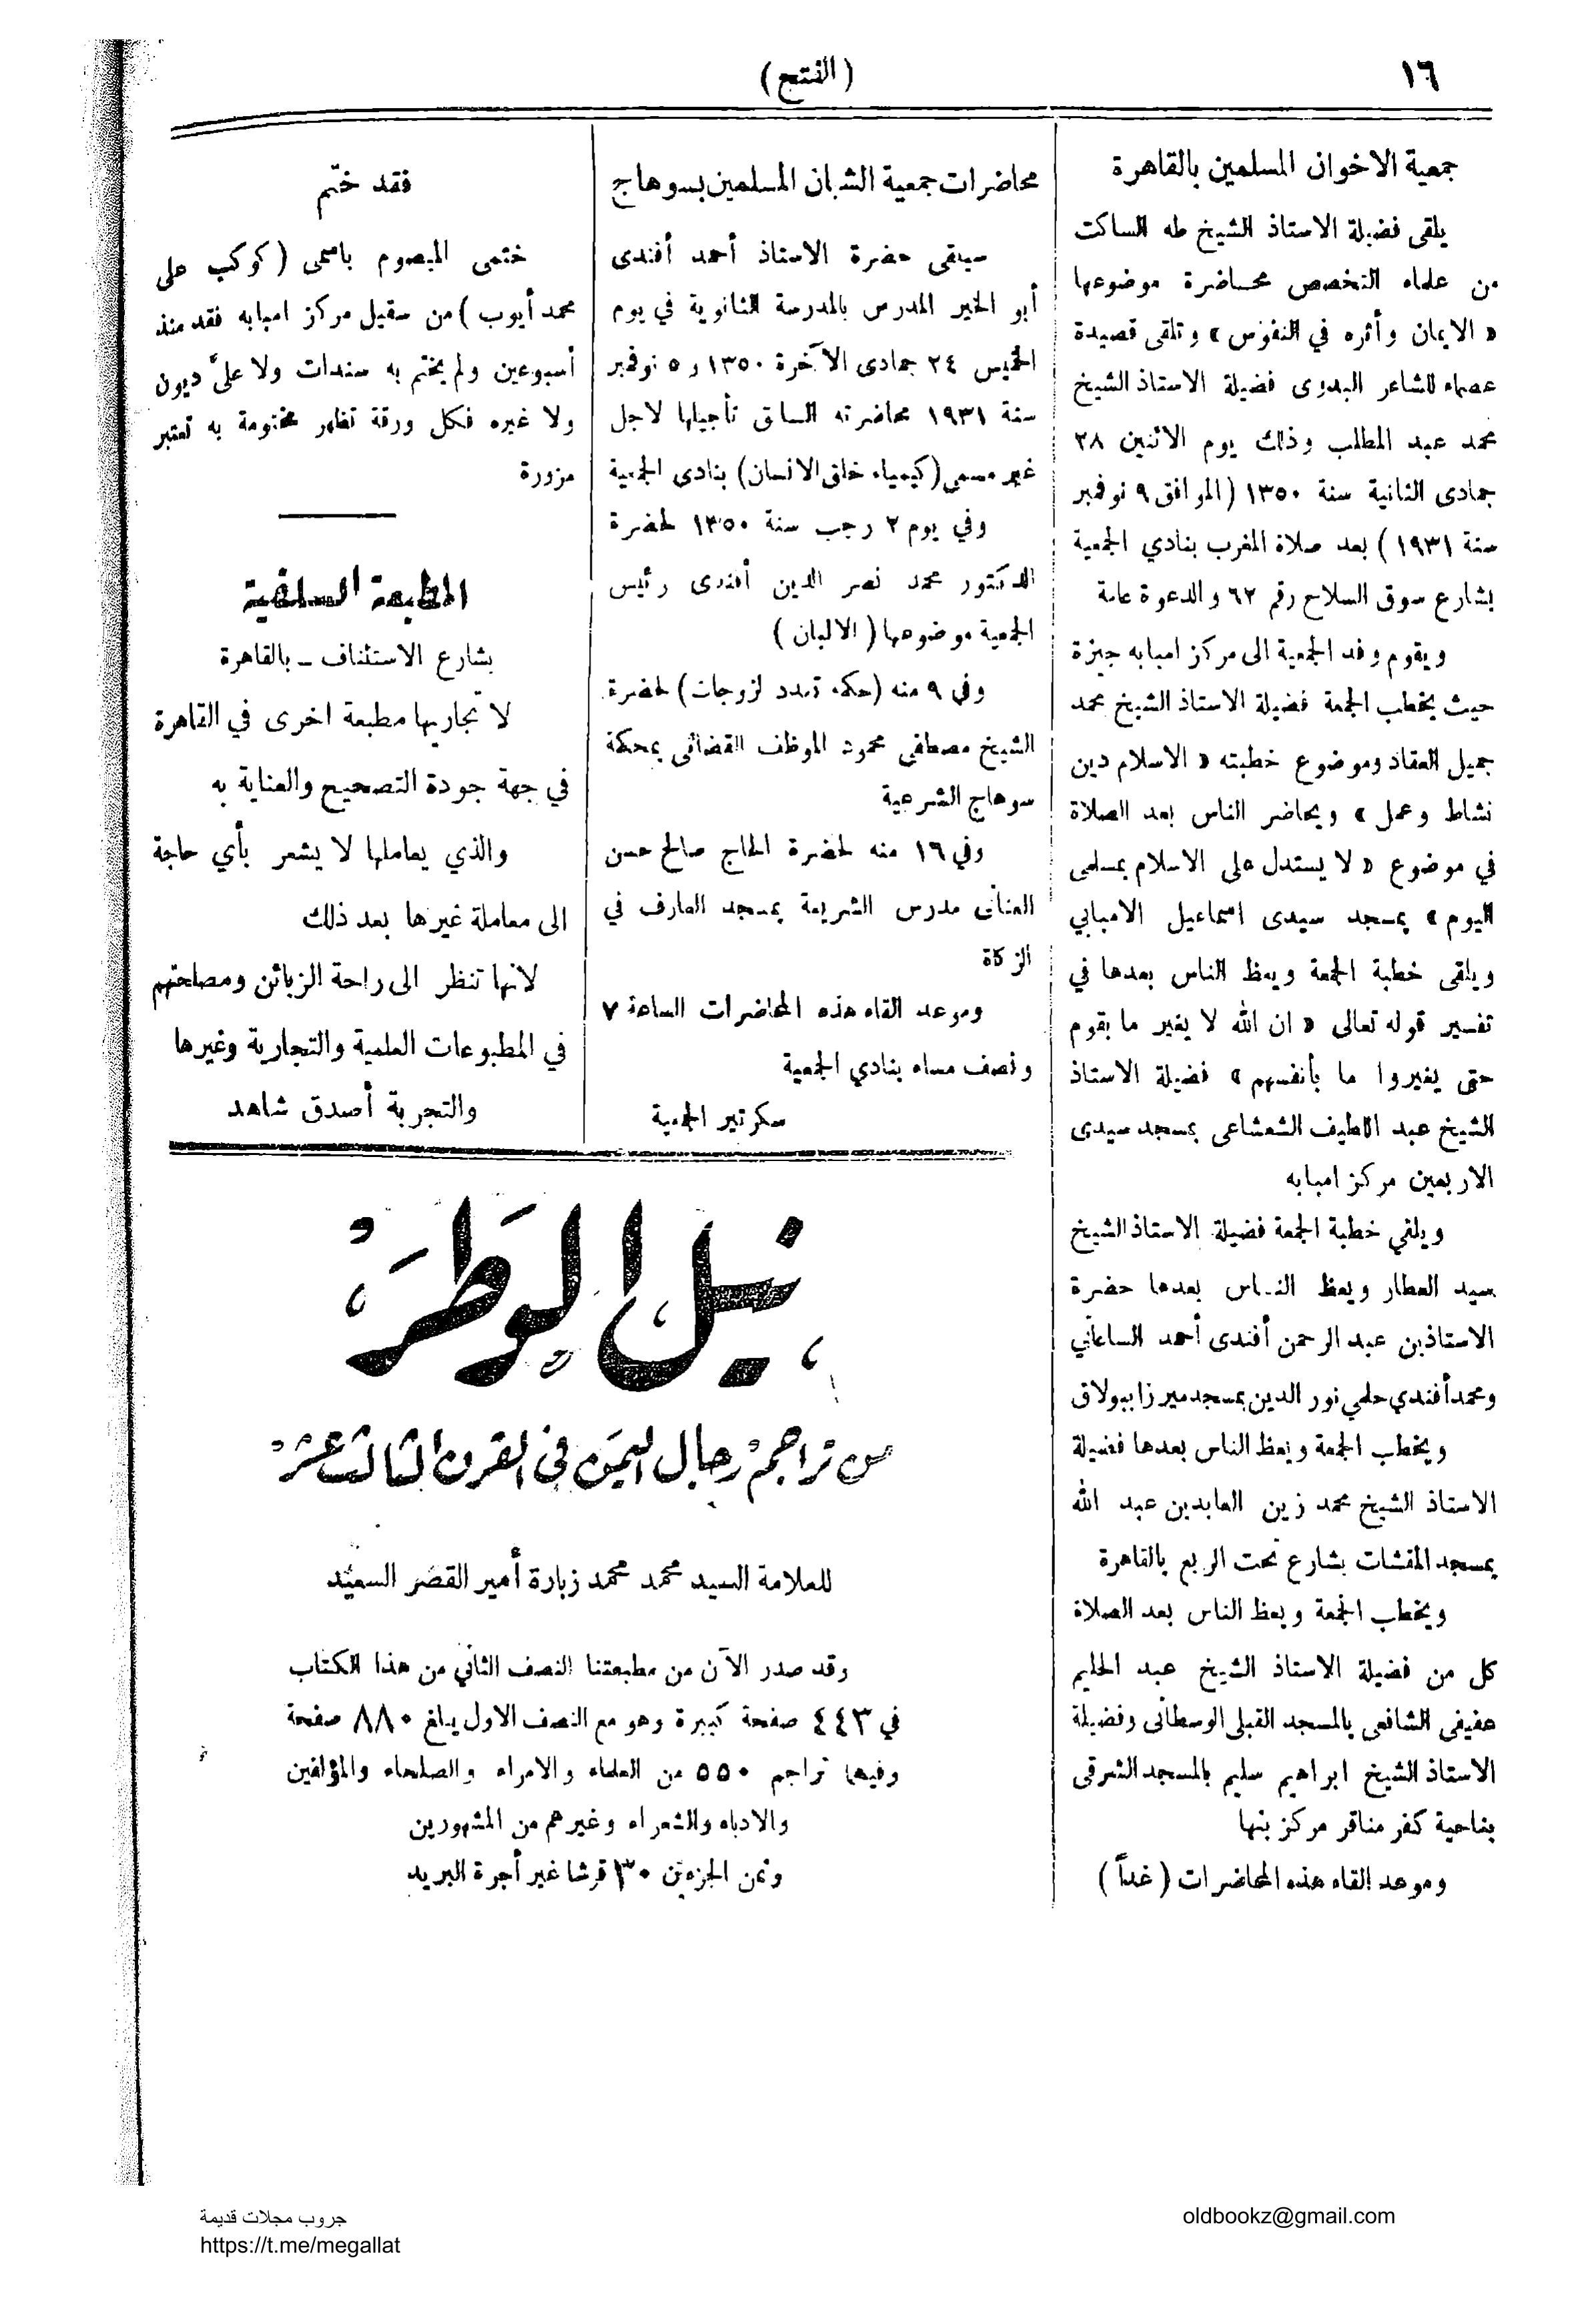 ١٦
(الفتح)
جمعية الاخوان المسلمين بالقاهرة
يلقى فضيلة الاستاذ الشيخ طه الساكت
من علماء التخصص محاضرة موضوعها
« الايمان وأثره في النفوس » وتلقى قصيدة
عصماء للشاعر البدوى فضيلة الاستاذ الشيخ
محمد عبد المطلب وذلك يوم الاثنين ٢٨
جمادى الثانية سنة ١٣٥٠ (الموافق ٩ نوفمبر
سنة ١٩٣١) بعد صلاة المغرب بنادي الجمعية
بشارع سوق السلاح رقم ٦٢ والدعوة عامة
ويقوم وفد الجمعية الى مركز امبابه جيزة
حيث يخطب الجمعة فضيلة الاستاذ الشيخ محمد
جميل العقاد وموضوع خطبته « الاسلام دين
نشاط وعمل » ويحاضر الناس بعد الصلاة
في موضوع « لا يستدل على الاسلام بمسلمى
اليوم » بمسجد سيدى اسماعيل الامبابي
ويلقى خطبة الجمعة ويعظ الناس بعدها في
تفسير قوله تعالى « ان الله لا يغير ما بقوم
حتى يغيروا ما بأنفسهم » فضيلة الاستاذ
الشيخ عبد اللطيف الشعشاعى بمسجد سيدى
الاربعين مركز امبابه
ويلقي خطبة الجمعة فضيلة الاستاذ الشيخ
سيد العطار ويعظ الناس بعدها حضرة
الاستاذين عبد الرحمن أفندى أحمد الساعاتي
ومحمد أفندي حلمي نور الدين بمسجد ميرزا ببولاق
ويخطب الجمعة ويعظ الناس بعدها فضيلة
الاستاذ الشيخ محمد زين العابدين عبد الله
بمسجد المفشات بشارع تحت الربع بالقاهرة
ويخطب الجمعة ويعظ الناس بعد الصلاة
كل من فضيلة الاستاذ الشيخ عبد الحليم
عفيفى الشافعى بالمسجد القبلى الوسطانى وفضيلة
الاستاذ الشيخ ابراهيم سليم بالمسجد الشرقى
بناحية كفر مناقر مركز بنها
وموعد القاء هذه المحاضرات (غداً)
محاضرات جمعية الشبان المسلمين بسوهاج
سيلقى حضرة الاستاذ أحمد أفندى
أبو الخير المدرس بالمدرسة الثانوية في يوم
الخميس ٢٤ جمادى الآخرة ١٣٥٠ و ٥ نوفمبر
سنة ١٩٣١ محاضرته السابق تأجيلها لاجل
غير مسمى (كيمياء خلق الانسان) بنادى الجمعية
وفي يوم ٢ رجب سنة ١٣٥٠ لحضرة
الدكتور محمد نصر الدين أفندى رئيس
الجمعية موضوعها (الالبان)
وفي ٩ منه (حكمة تعدد الزوجات) لحضرة
الشيخ مصطفى محمود الموظف القضائى بمحكمة
سوهاج الشرعية
وفي ١٦ منه لحضرة الحاج صالح حسن
العنانى مدرس الشريعة بمسجد العارف في
الزكاة
وموعد القاء هذه المحاضرات الساعة ٧
ونصف مساء بنادي الجمعية
سكرتير الجمعية
فقد ختم
ختمى المبصوم باسمى (كوكب على
محمد أيوب) من سقيل مركز امبابه فقد منذ
أسبوعين ولم يختم به سندات ولا علىّ ديون
ولا غيره فكل ورقة تظهر مختومة به تعتبر
مزورة
المطبعة السلفية
بشارع الاستئناف ــ بالقاهرة
لا تجاريها مطبعة اخرى في القاهرة
في جهة جودة التصحيح والعناية به
والذي يعاملها لا يشعر بأي حاجة
الى معاملة غيرها بعد ذلك
لانها تنظر الى راحة الزبائن ومصلحتهم
في المطبوعات العلمية والتجارية وغيرها
والتجربة أصدق شاهد
نيل الوطر
من تراجم رجال اليمن في القرن الثالث عشر
للعلامة السيد محمد محمد زبارة أمير القصر السعيد
وقد صدر الآن من مطبعتنا النصف الثاني من هذا الكتاب
في ٤٤٣ صفحة كبيرة وهو مع النصف الاول يبلغ ٨٨٠ صفحة
وفيها تراجم ٥٥٠ من العلماء والامراء والصلحاء والمؤلفين
والادباء والشعراء وغيرهم من المشهورين
وثمن الجزءين ٣٠ قرشا غير أجرة البريد
جروب مجلات قديمة
https://t.me/megallat
oldbookz@gmail.com